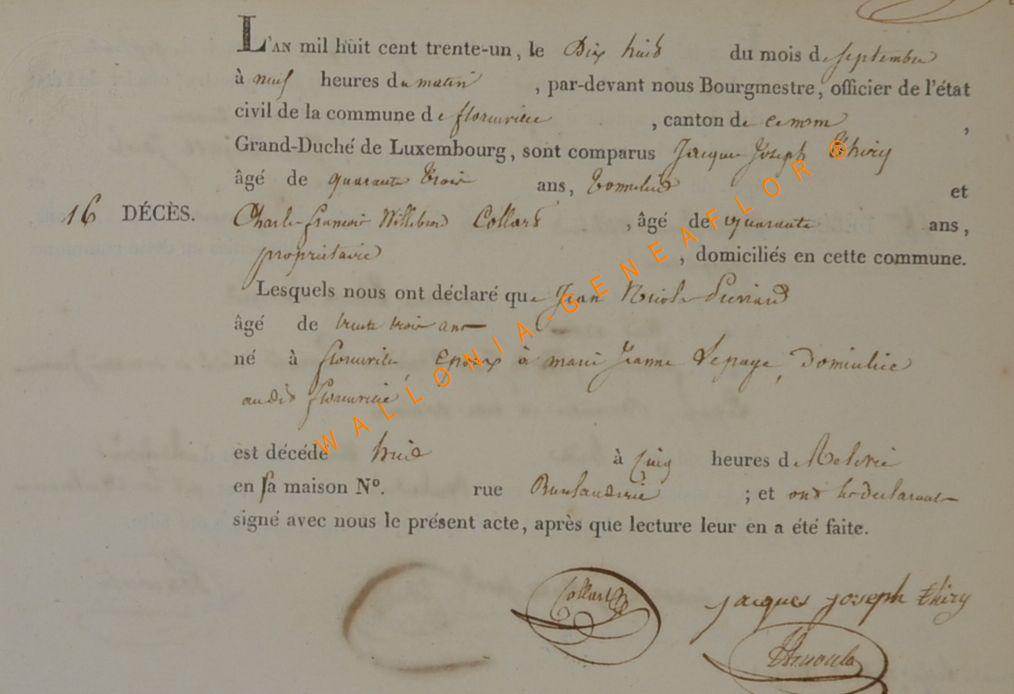 L'AN mil huit cent trente-un, le Dix huit du mois de septembre
à neuf heures du matin, par-devant nous Bourgmestre, officier de l'état
civil de la commune de florenville, canton de ce nom,
Grand-Duché de Luxembourg, sont comparus Jacque Joseph Thiry
âgé de quarante trois ans, et
16 DÉCÈS. Charle françois Willebrod Collart, âgé de quarante ans,
propriétaire, domiciliés en cette commune.
Lesquels nous ont déclaré que Jean Nicolas
âgé de trente trois ans
né à florenville, Epoux à marie Jeanne Lepage, domicilié
audit florenville
est décédé à Cinq heures de
en sa maison N°. rue ; et ont les declarant
signé avec nous le présent acte, après que lecture leur en a été faite.
Collart jacques joseph thiry
WALLONIA-GENEAFLOR ©